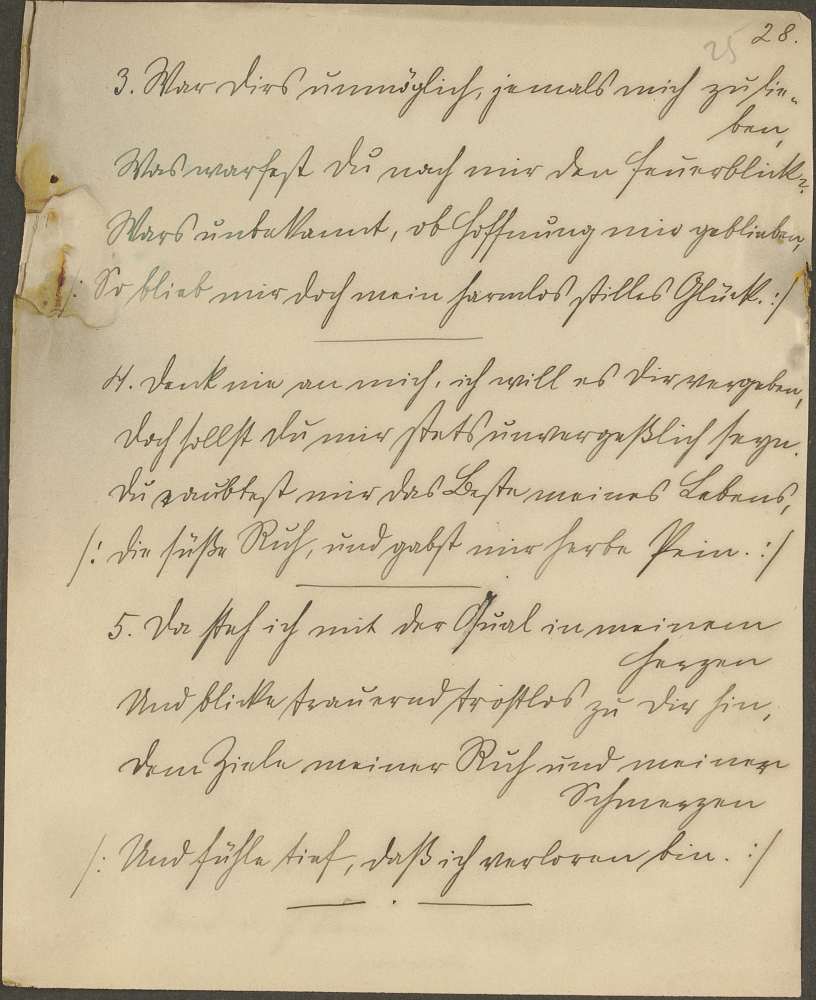 28.
25
3. War dirs unmöglich, jemals mich zu lie-
ben,
Was warfest du nach mir den Feuerblick?
Wars unbekannt, ob Hoffnung mir geblieben,
/: So blieb mir doch mein harmlos stilles Glück. :/
4. Denk nie an mich, ich will es dir vergeben,
Doch sollst du mir stets unvergeßlich seyn.
Du raubtest mir das Beste meines Lebens,
/: Die süße Ruh, und gabst mir herbe Pein. :/
5. Da steh ich mit der Qual in meinem
Herzen
Und blicke trauernd trostlos zu dir hin,
Dem Ziele meiner Ruh und meiner
Schmerzen
/: Und fühle tief, daß ich verloren bin. :/